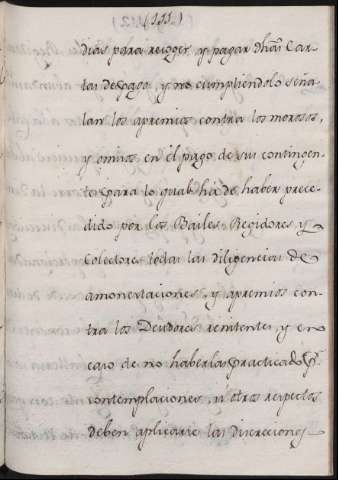 (111)
dias para recoger, y pagar dhas Car-
tas de pago, y no cumpliendolo seña-
lan los apremios contra los morosos,
y omisos en el pago de sus contingen-
tes para lo qual ha de haber prece-
dido por los Bailes, Regidores y
Colectores todas las diligencias de
amonestaciones, y apremios con-
tra los Deudores renitentes, y en
caso de no haberlas practicado p.r
contemplaciones, ù otros respectos
deben aplicarse las discreciones